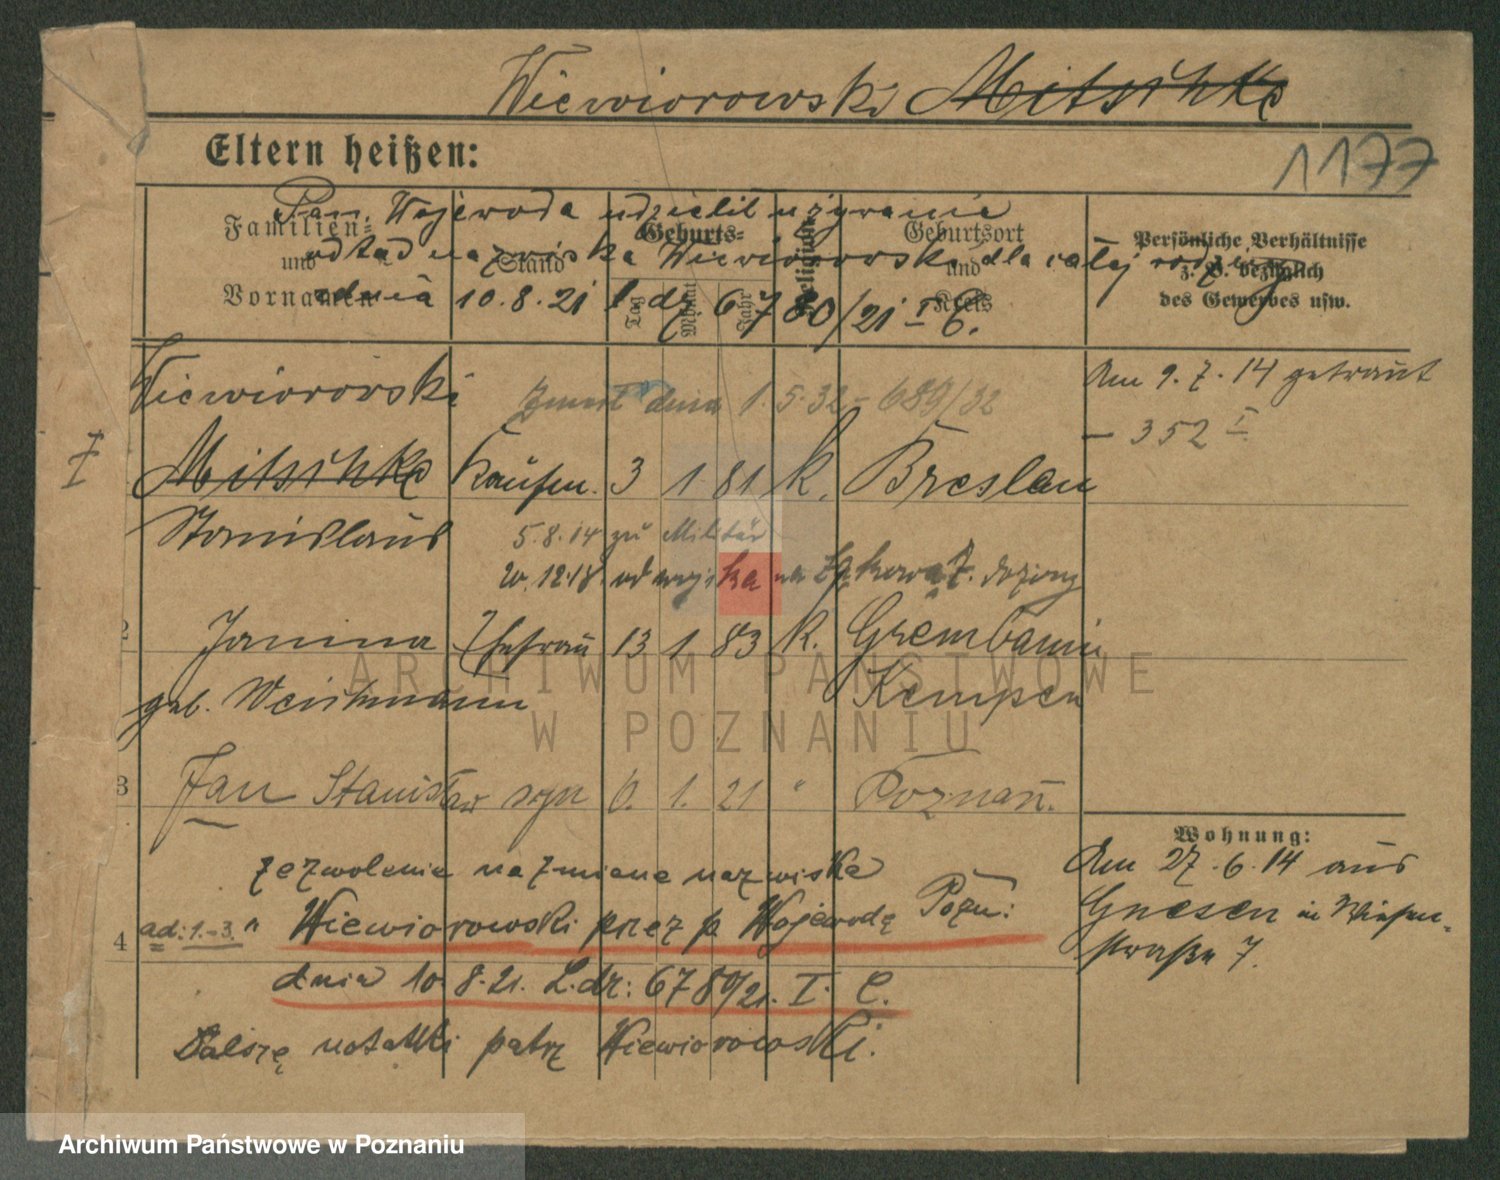 Wiewiorowski Mitschke
Eltern heißen:
1177
Pan Wojewoda udzielił używanie
odtąd nazwiska Wiewiorowski dla całej rodziny
dnia 10.8.21 l. dz 6780/21 I C.
Familien- und Vornamen
Stand
Geburts-
Tag
Monat
Jahr
Religion
Geburtsort und Kreis
Persönliche Verhältnisse
z. B. bezüglich
des Gewerbes usw.
Wiewiorowski
Zmarł dnia 1.5.32 - 689/32
Am 9.7.14 getraut
- 352 I
Mitschke Kaufm. 3 1 81 k. Breslau
Stanislaus
5.8.14 zu Militär
20.12.18 od wojska na 7.
2 Janina Ehefrau 13 1 83 k. Grembanin
geb. Weichmann Kempen
3 Jan Stanisław syn 6. 1. 21 " Poznań.
Wohnung:
Am 27.6.14 aus
Gnesen in Wiesen-
straße 7.
zezwolenie na zmianę nazwiska
4 ad: 1.-3. " Wiewiorowski przez p Wojewodę Pozn:
dnia 10.8.21. L.dz: 6780/21. I. C.
Dalszę notatki patrz Wiewiorowski.
ARCHIWUM PAŃSTWOWE
W POZNANIU
Archiwum Państwowe w Poznaniu